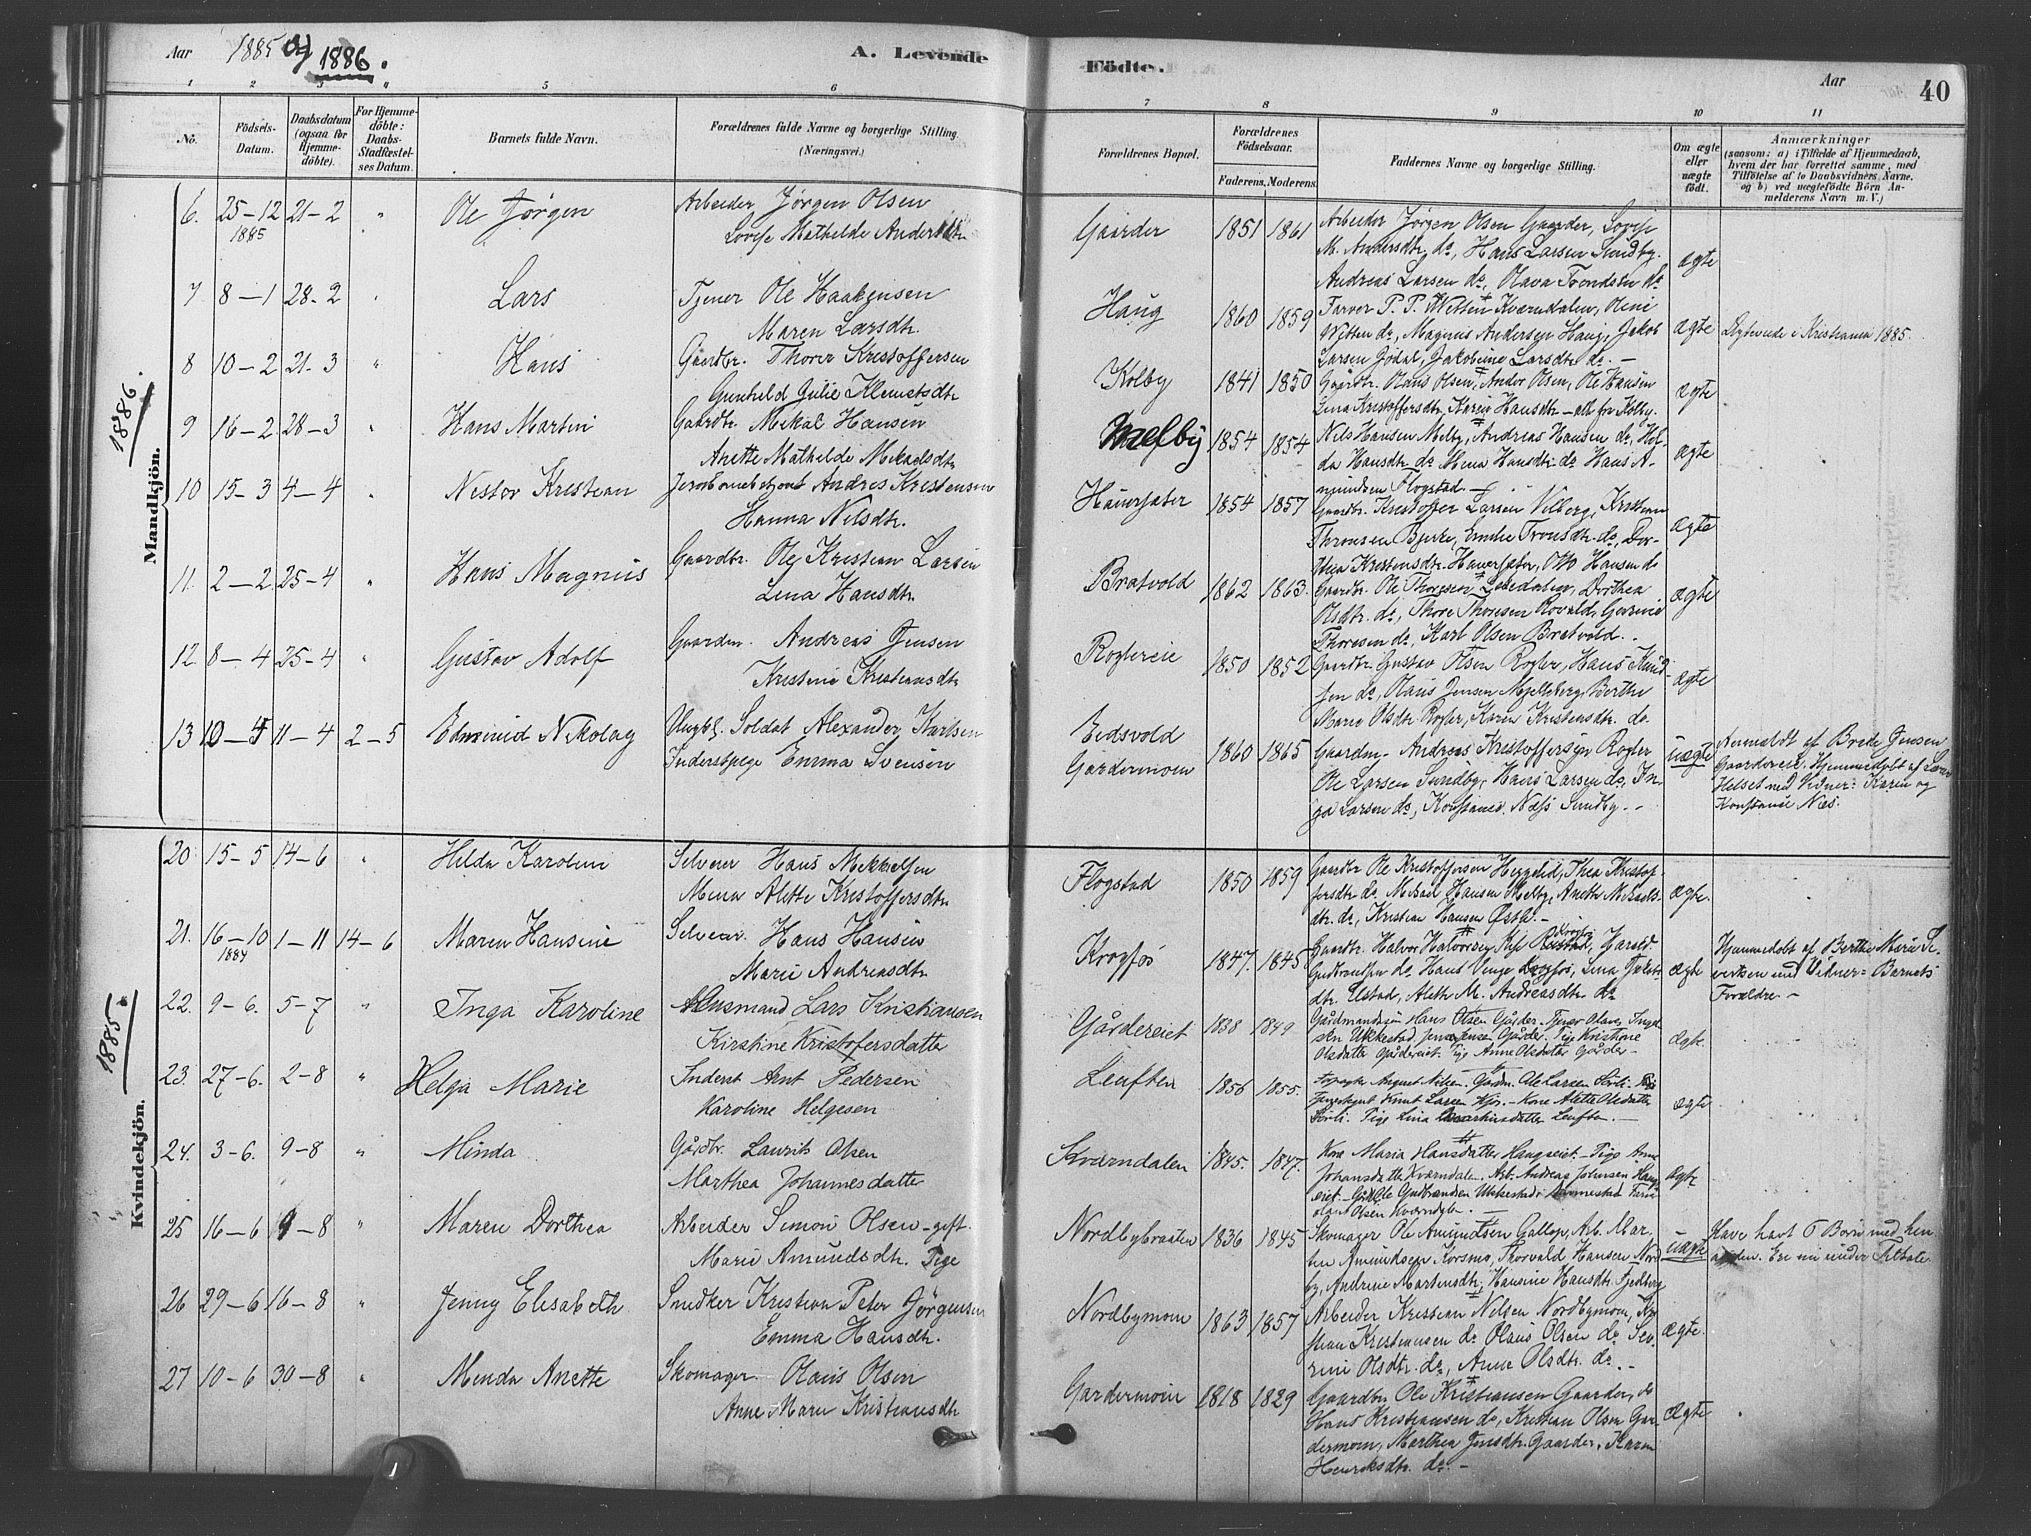 Aar 1885 og 1886.
A. Levende Födte.
Aar 40
1 2 3 4 5 6 7 8 9 10 11
No.
Födsels-Datum.
Daabsdatum (ogsaa for Hjemmedöbte).
For Hjemmedöbte: Daabs-Stadfæstelses Datum.
Barnets fulde Navn.
Forældrenes fulde Navne og borgerlige Stilling. (Næringsvei.)
Forældrenes Bopæl.
Forældrenes Födselsaar.
Faderens. Moderens.
Faddernes Navne og borgerlige Stilling.
Om ægte eller uægte födt.
Anmærkninger
(saasom: a) i Tilfælde af Hjemmedaab, hvem der har forrettet samme, med Tilföielse af to Daabsvidners Navne, og b) ved uægtefödte Börn Anmelderens Navn m. V.)
1886.
Mandkjön.
6. 25-12 1885 21-2 " Ole Jørgen
Arbeider Jørgen Olsen
Lovise Mathilde Andersdtr
Gaarder 1851 1861
Arbeider Jørgen Olsen Gaarder, Lovise
M. Andersdtr. do, Hans Larsen Sundby.
Andreas Larsen do, Olava Trondsen do
ægte
7 8-1 28-2 " Lars
Tjener Ole Haakensen
Maren Larsdtr.
Haug 1860 1859
Farver P. P. Witten Kværndalen, Oline
Witten do, Magnus Andersen Haug, Jakob
Larsen Jødal, Jakobine Larsdtr do. -
ægte Ægteviede i Kristiania 1885.
8 10-2 21-3 " Hans
Gaardbr. Thorer Kristoffersen
Gunhild Julie Klemetsdtr
Kolby 1841 1850
Gaardbr. Olaus Olsen, Andor Olsen, Ole Hansen
Lina Kristoffersdtr, Karen Hansdtr - alle fra Kolby.
ægte
9 16-2 28-3 " Hans Martin
Gaardbr. Mikal Hansen
Anette Mathilde Mikaelsdtr
Melby 1854 1854
Nils Hansen Melby, Andreas Hansen do, Hel-
da Hansdtr do Mina Hansdtr do Hans A-
mundsen Flogstad. -
ægte
10 15-3 4-4 " Nestor Kristian
Jernbanebetjent Andres Kristensen
Hanna Nilsdtr.
Hauersæter 1854 1857
Gaardbr. Kristoffer Larsen Vilberg, Kristian
Thronsen Bjerke, Emilie Tronsdtr. do, Dor-
thea Kristensdtr. Hauersæter, Otto Hansen do
ægte
11. 2-2 25-4 " Hans Magnus
Gaardbr. Ole Kristian Larsen
Lina Hansdtr.
Bratvold 1862 1863.
Gaardbr. Ole Thoresen, Dorthea
Olsdtr. do, Thore Thoresen Rovald,
Thoresen do, Karl Olsen Bratvold.
ægte
12. 8-4 25-4 " Gustav Adolf
Gaardm. Andreas Jensen
Kristine Kristiansdtr
Roglereie 1850 1852
Gaardbr. Gustav Olsen Rogler, Hans Knud-
sen do, Olaus Jensen Mjelleberg, Berthe
Marie Olsdtr. Rogler, Karen Kristensdtr. do.
ægte
13 10-4 11-4 2-5 Edmund Nikolay
Ungk. Soldat Alexander Karlsen
Inderstpige Emma Svensen
Eidsvold
Gardermoen 1860 1865
Gaardm. Andreas Kristoffersen Rogler
Ole Larsen Sundby, Hans Larsen do, In-
ga Larsen do, Konstance Næss Sundby. -
uægte
Anmeldt af Brede Jensen
Gaardereie. Hjemmedøbt af
Helset med Vidner: Karen og
Konstance Næs.
1885.
Kvindekjön.
20 15-5 14-6 " Hilda Karoline
Selveier Hans Mikkelsen
Mina Alette Kristoffersdtr.
Flogstad 1850 1859
Gaardbr Ole Kristoffersen Heggelid, Thea Kristof-
fersdtr. do Mikael Hansen Melby, Anette Mikaels-
dtr. do, Kristian Hansen Østby. -
ægte.
21. 16-10 1884 1-11 14-6 Maren Hansine
Selveier. Hans Hansen
Marie Andreasdtr.
Krogfos 1847. 1845
Gaardbr. Halvor Halvorsen, Harald
Gudbrandsen do, Hans Venge Krogfos, Lina
dtr. Elstad, Aleth M. Andreasdtr. do
ægte
Hjemmedøbt af Berthe Marie Si-
vertsen med Vidner: Barnets
Forældre -
22. 9-6. 5-7 " Inga Karoline
Husmand Lars Kristiansen
Kirstine Kristofersdatter
Gårdereiet 1838 1849
Gårdmandssøn Hans Olsen Gårder - Tjener Olaves Inge
sen Ukkestad. Jens Jensen Gårder. Pige Kristine
Olsdatter Gårdereiet. Pige Anne Olsdatter Gårder -
ægte.
23. 27-6. 2-8 " Helga Marie
Inderst Arnt Pedersen
Karoline Helgesen
Leuften 1856 1855.
August Nilsen. Gårdm. Ole Larsen Sørli.
Knut Larsen - Kone Alette Olsdatter
Sørli. Pige Lina Leuften. -
ægte
24. 3-6. 9-8 " Minda
Gårdbr. Laurits Olsen
Marthea Johannesdatter
Kværndalen 1845. 1847.
Kone Maria Hansdatter Haugseiet - Pige Anne
Johansdatter Kværndalen. Arb. Andreas Johnsen Haug-
seiet - Ole Gudbrandsen Ukkestad
Olsen Kværndalen. -
ægte
25 16-6 9-8 " Maren Dorthea
Arbeider Simon Olsen - gift
Marie Amundsdtr. Pige
Nordbybraaten 1836 1845
Skomager Ole Amundsen Gallop, Arb. Mar-
tin Amundsen Korsmo, Thorvald Hansen Nord-
by, Andrine Martinsdtr, Hansine Hansdtr. Fjeldberg
uægte
Have havt 7 Børn med hen-
anden. Er nu under Tiltale.
26 29-6 16-8 " Jenny Elisabeth
Snedker Kristian Peter Jørgensen
Emma Hansdtr.
Nordbymoen 1863 1857
Arbeider Kristian Nilsen Nordbymoen,
Kristiansen do Olaus Olsen do Sev-
rine Olsdtr. do, Anne Olsdtr. do. -
ægte.
27 10-6 30-8 " Minda Anette
Skomager. Olaus Olsen
Anne Marie Kristiansdtr
Gardermoen 1818 1829
Gaardbr. Ole Kristiansen Gaarder, do
Hans Kristiansen do, Kristian Olsen Gar-
dermoen, Marthea Jensdtr. Gaarder, Karen
Henriksdtr. do. -
ægte